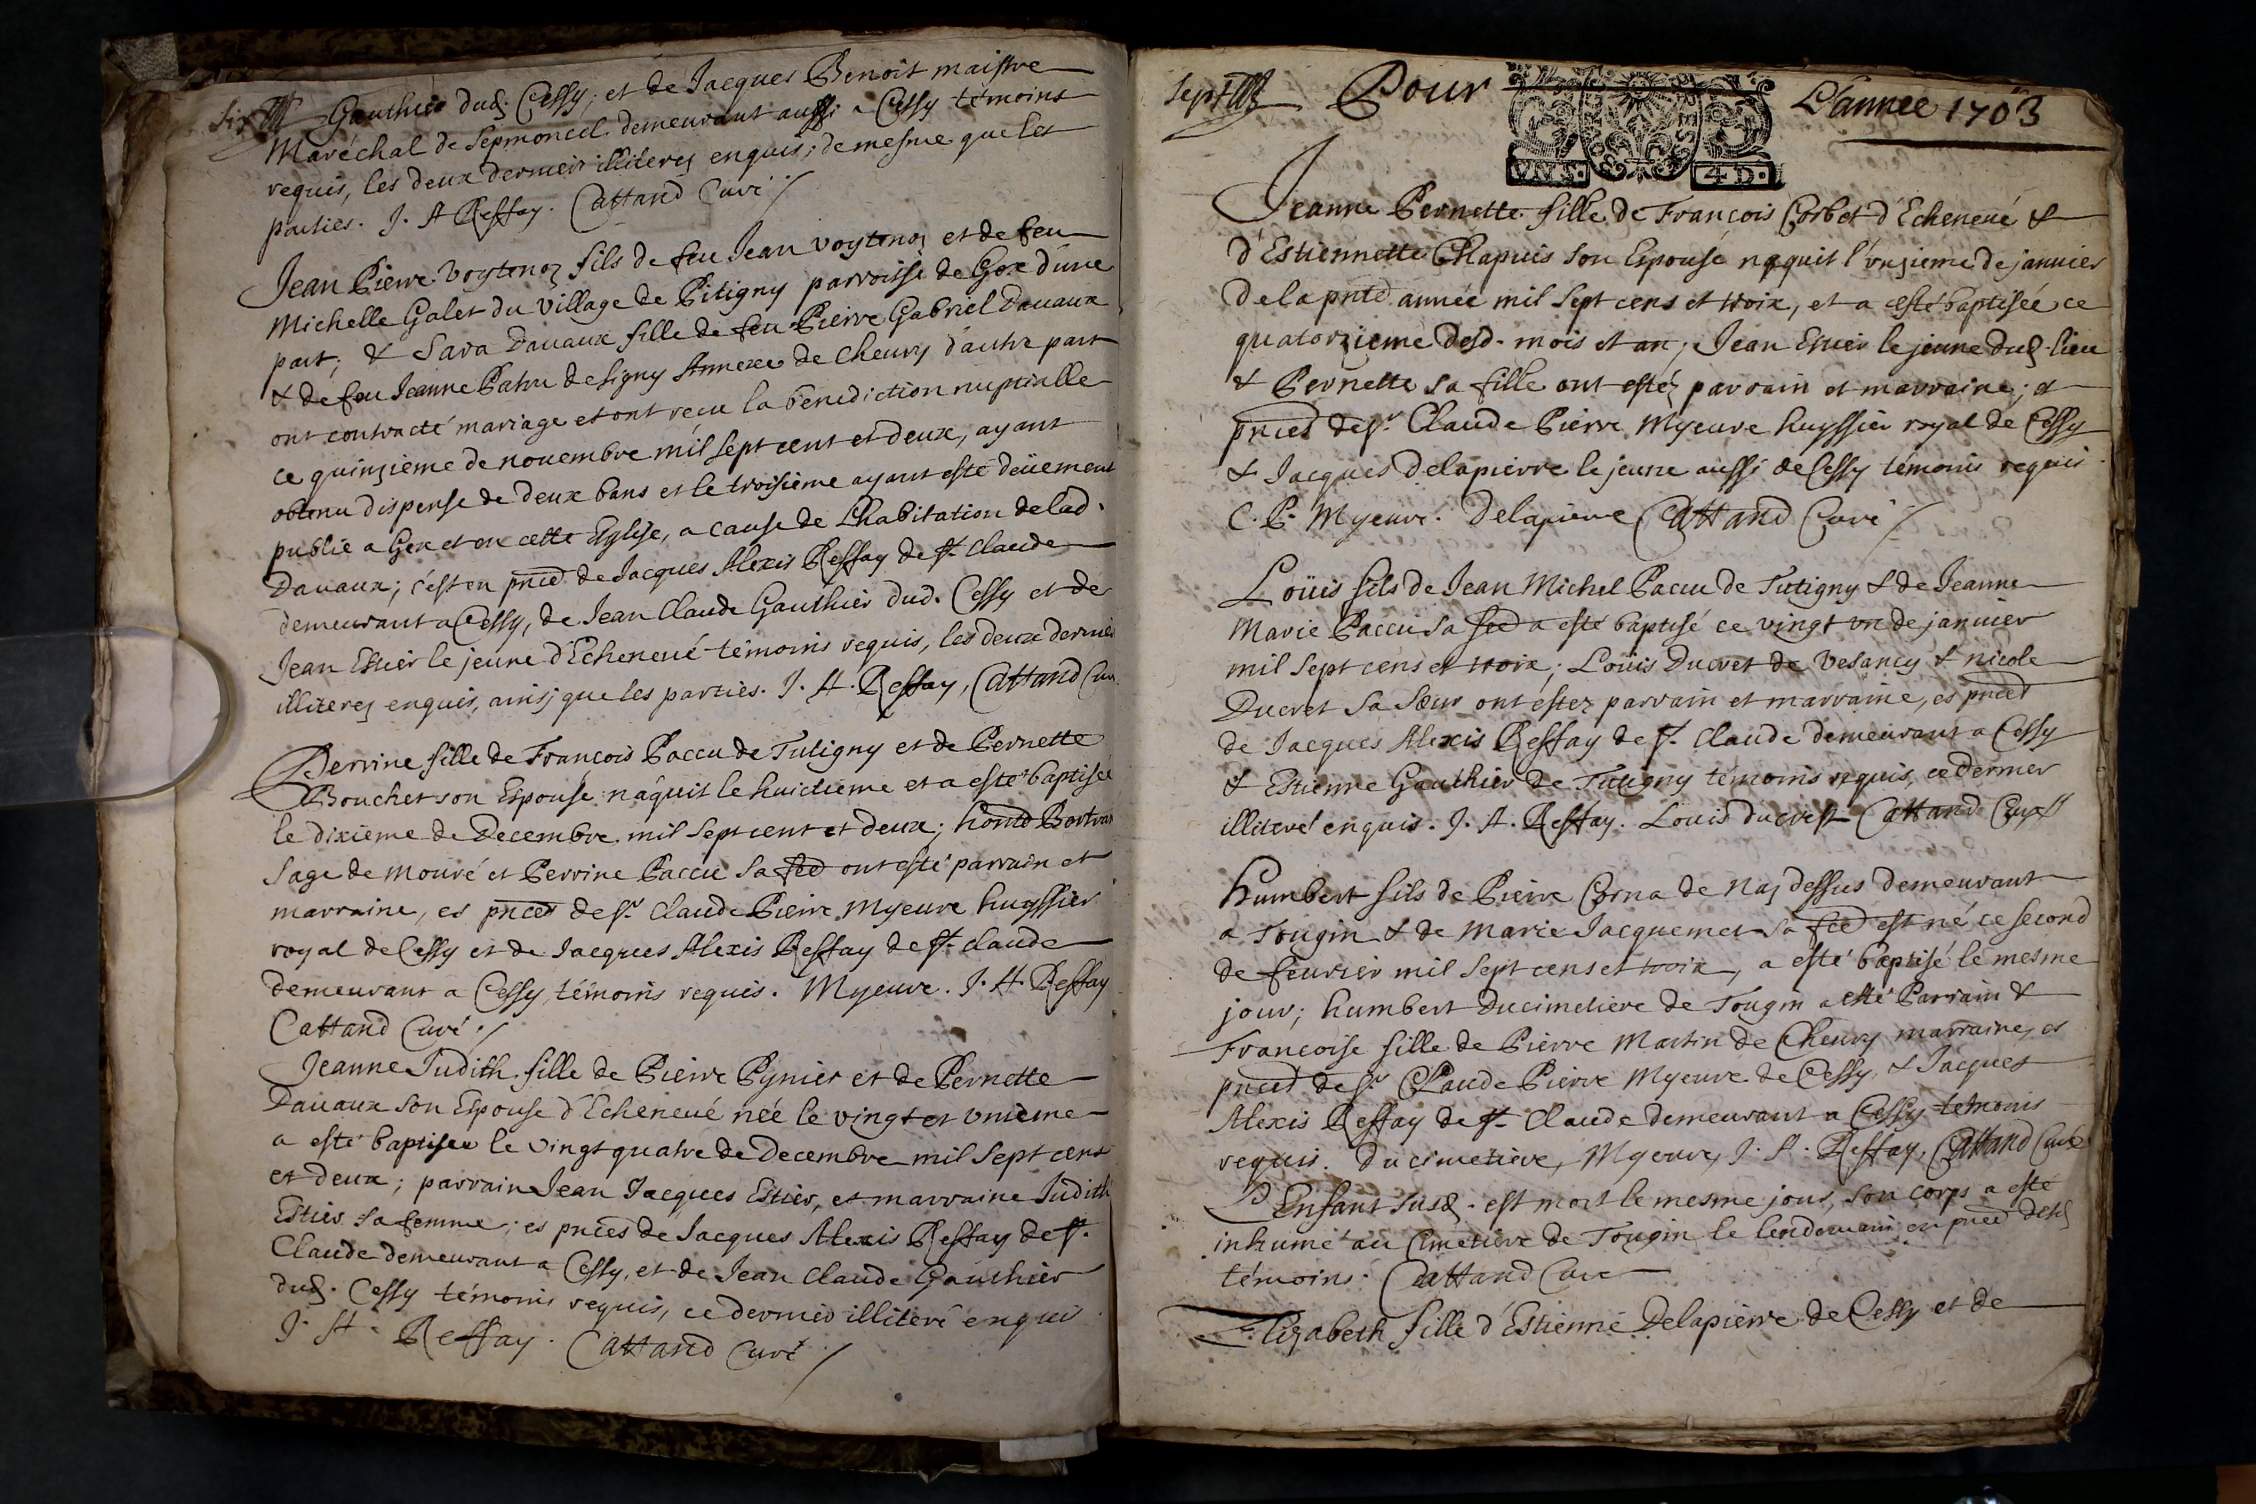 Gauthier dud. Cessy; et de Jacques Benoit maistre
Maréchal de Sepmoncel demeurant aussi a Cessy témoins
requis, les deux derniers illiterez enquis; de mesme que les
parties. J. A Reffay. Cattand Curé
Jean Pierre Voytenoz fils de feu Jean Voytenoz et de feu
Michelle Galet du Village de Pitigny parroisse de Gex d'une
part; & Sara Dauaux fille de feu Pierre Gabriel Dauaux
& de feu Jeanne Patru de Signy Annexe de Cheury d'autre part
ont contracté mariage et ont receu la benediction nuptialle
ce quinzieme de nouembre mil sept cent et deux, ayant
obtenu dispense de deux bans et le troisieme ayant esté deüement
publié a Gex et en cette Eglise, a cause de l'habitation de lad.
Dauaux; c'est en pnce de Jacques Alexis Reffay de st. Claude
demeurant a Cessy, de Jean Claude Gauthier dud. Cessy et de
Jean Estier le jeune d'Echeneué témoins requis, les deux dernier
illiterez enquis, ainsj que les parties. J. A. Reffay, Cattand Cur
Perrine fille de François Paccu de Tutigny et de Pernette
Bouchet son Espouse náquit le huictieme et a esté baptisée
le dixieme de Decembre mil sept cent et deux; honte
Sage de Mouré et Perrine Paccu sa fee ont esté parrain et
marraine, es pnces de sr. Claude Pierre Myeure huyssier
royal de Cessy et de Jacques Alexis Reffay de st. Claude
demeurant a Cessy témoins requis. Myeure. J. A. Reffay
Cattand Curé
Jeanne Judith fille de Pierre Pynier et de Pernette
Dauaux son Espouse d'Echeneué née le vingt et vnieme
a esté baptisee le vingt quatre de Decembre mil sept cens
et deux; parrain Jean Jacques Estier, et marraine Judith
Estier sa femme; es pnces de Jacques Alexis Reffay de st.
Claude demeurant a Cessy, et de Jean Claude Gauthier
dud. Cessy témoins requis, ce dernier illiteré enquis
J. A. Reffay. Cattand Curé
Sept
Pour L'année 1703
Jeanne Pernette fille de François Corbet d'Echeneué &
d'Estiennette Chapuis son Espouse nâquit l'vnzieme de januier
de la pnte année mil sept cens et troix, et a esté baptisée ce
quatorzieme desd. mois et an; Jean Estier le jeune dud. lieu
& Pernette sa fille ont estéz parrain et marraine; es
pnces de sr. Claude Pierre Myeure huyssier royal de Cessy
& Jacques Delapierre le jeune aussi de Cessy témoins requis
C. P. Myeure. Delapierre Cattand Curé
Loüis fils de Jean Michel Paccu de Tutigny & de Jeanne
Marie Paccu sa fee a esté baptisé ce vingt vn de januier
mil sept cens et troix; Loüis Ducret de Vesancy & nicole
Ducret sa sœur ont estez parrain et marraine, es pnces
de Jacques Alexis Reffay de st. Claude demeurant a Cessy
& Estienne Gauthier de Tutigny témoins requis, ce dernier
illiteré enquis. J. A. Reffay. Louis ducrest Cattand Curé
Humbert fils de Pierre Corna de Naz dessus demeurant
a Tougin & de Marie Jacquemet sa fee est né ce second
de feurier mil sept cens et troix, a esté baptisé le mesme
jour; humbert Ducimetiere de Tougin a esté Parrain &
Francoise fille de Pierre Martin de Cheury marraine, es
pnces de sr Claude Pierre Myeure de Cessy & Jacques
Alexis Reffay de st. Claude demeurant a Cessy témoins
requis. Ducimetiere, Myeure, J. A. Reffay, Cattand Curé
L'Enfant susd. est mort le mesme jour, son corps a esté
inhumé au Cimetiere de Tougin le lendemain en pnce desd
témoins. Cattand Curé
Elizabeth fille d'Estienne Delapierre de Cessy et de